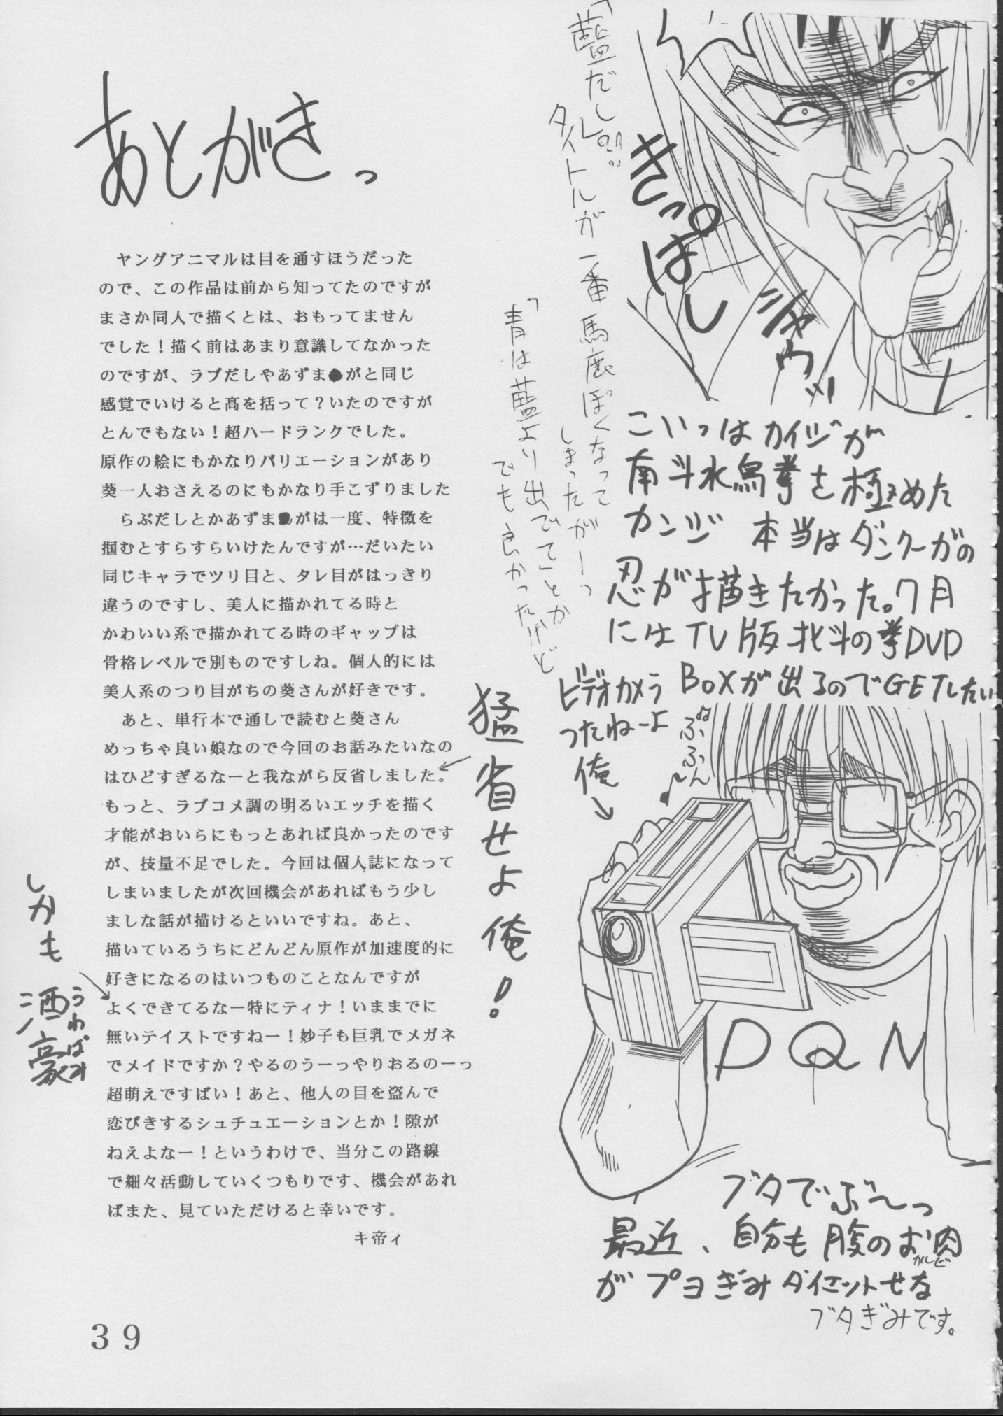 あとがきっ
ヤングアニマルは目を通すほうだった
ので、この作品は前から知ってたのですが
まさか同人で描くとは、おもってません
でした！描く前はあまり意識してなかった
のですが、ラブだしやあずま●がと同じ
感覚でいけると高を括って？いたのですが
とんでもない！超ハードランクでした。
原作の絵にもかなりバリエーションがあり
葵一人おさえるのにもかなり手こずりました
らぶだしとかあずま●がは一度、特徴を
掴むとすらすらいけたんですが…だいたい
同じキャラでツリ目と、タレ目がはっきり
違うのですし、美人に描かれてる時と
かわいい系で描かれてる時のギャップは
骨格レベルで別ものですしね。個人的には
美人系のつり目がちの葵さんが好きです。
あと、単行本で通しで読むと葵さん
めっちゃ良い娘なので今回のお話みたいなの
はひどすぎるなーと我ながら反省しました。
もっと、ラブコメ調の明るいエッチを描く
才能がおいらにもっとあれば良かったのです
が、技量不足でした。今回は個人誌になって
しまいましたが次回機会があればもう少し
ましな話が描けるといいですね。あと、
描いているうちにどんどん原作が加速度的に
好きになるのはいつものことなんですが
よくできてるなー特にティナ！いままでに
無いテイストですねー！妙子も巨乳でメガネ
でメイドですか？やるのうーっやりおるのーっ
超萌えですばい！あと、他人の目を盗んで
恋びきするシュチュエーションとか！隙が
ねえよなー！というわけで、当分この路線
で細々活動していくつもりです、機会があれ
ばまた、見ていただけると幸いです。
キ帝ィ
しかも
酒豪
うわばみ
猛省せよ俺！
「藍だし」
タイトルが一番馬鹿ぽくなって
しまったがーっ
「青は藍より出でて」とか
でも良かったけど
きっぱし
シャウッ
こいつはカイジが
南斗水鳥拳を極めた
カンジ 本当はダンクーガの
忍が描きたかった。7月
にはTV版北斗の拳DVD
BOXが出るのでGETしたい
ビデオカメラ
うつたねーよ
俺
ぶふふん
DQN
ブタでぶ～っ
最近、自分も腹のお肉
がプヨぎみダイエットせな
ブタぎみです。
39